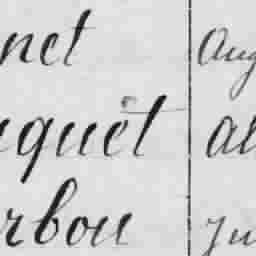 net Aug
uquet Al
rbou Ju